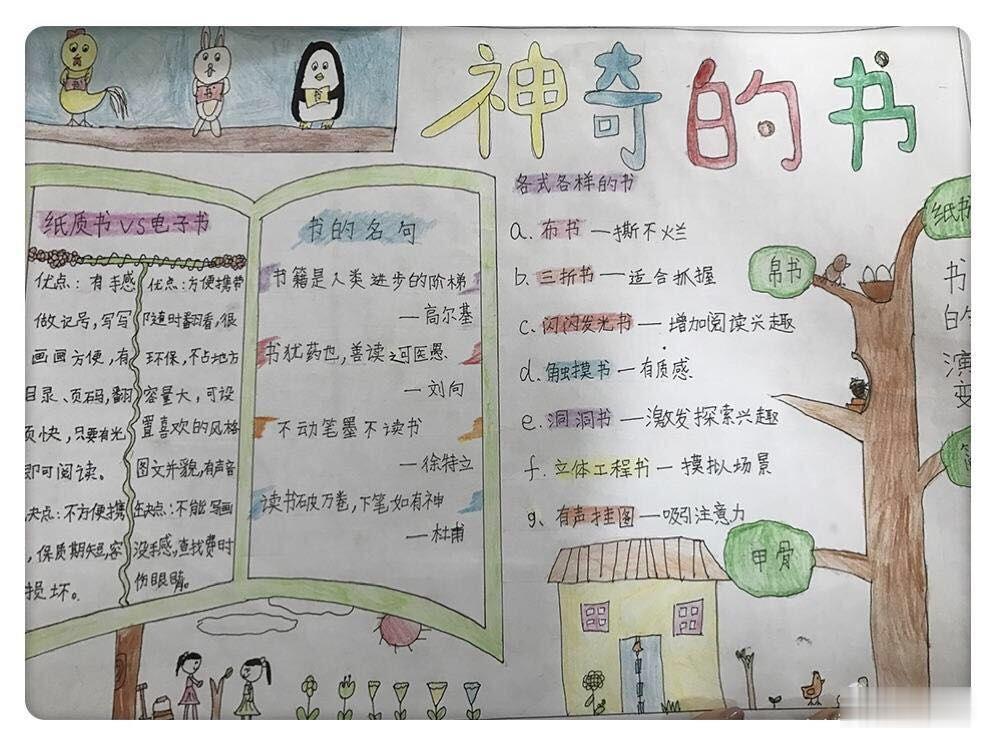 神奇的书
书
书
书
纸质书VS电子书
优点：有手感
做记号，写写
画画方便，有
目录、页码，翻
页快，只要有光
即可阅读。
缺点：不方便携
，保质期短，容
损坏。
优点：方便携带
随时翻看，很
环保，不占地方
容量大，可设
置喜欢的风格
图文并貌，有声音
缺点：不能写画
没手感，查找费时
伤眼睛。
书的名句
书籍是人类进步的阶梯
—高尔基
书犹药也，善读之可医愚
—刘向
不动笔墨不读书
—徐特立
读书破万卷，下笔如有神
—杜甫
各式各样的书
a.布书—撕不烂
b.三折书—适合抓握
c.闪闪发光书—增加阅读兴趣
d.触摸书—有质感
e.洞洞书—激发探索兴趣
f.立体工程书—模拟场景
g、有声挂图—吸引注意力
书的演变
纸书
帛书
甲骨